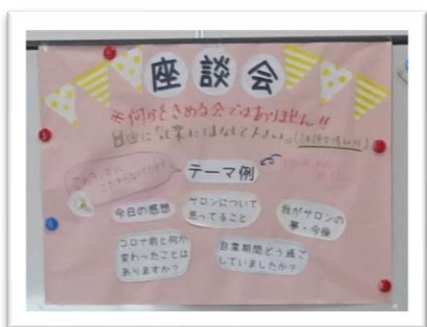 座談会
※何かをきめる会ではありません!!
自由に気楽にはなして下さい。
テーマ例
今日の感想
サロンについて
思ってること
我がサロンの
夢・今後
コロナ前と何か
変わったことは
ありますか?
自粛期間どう過ご
していましたか?